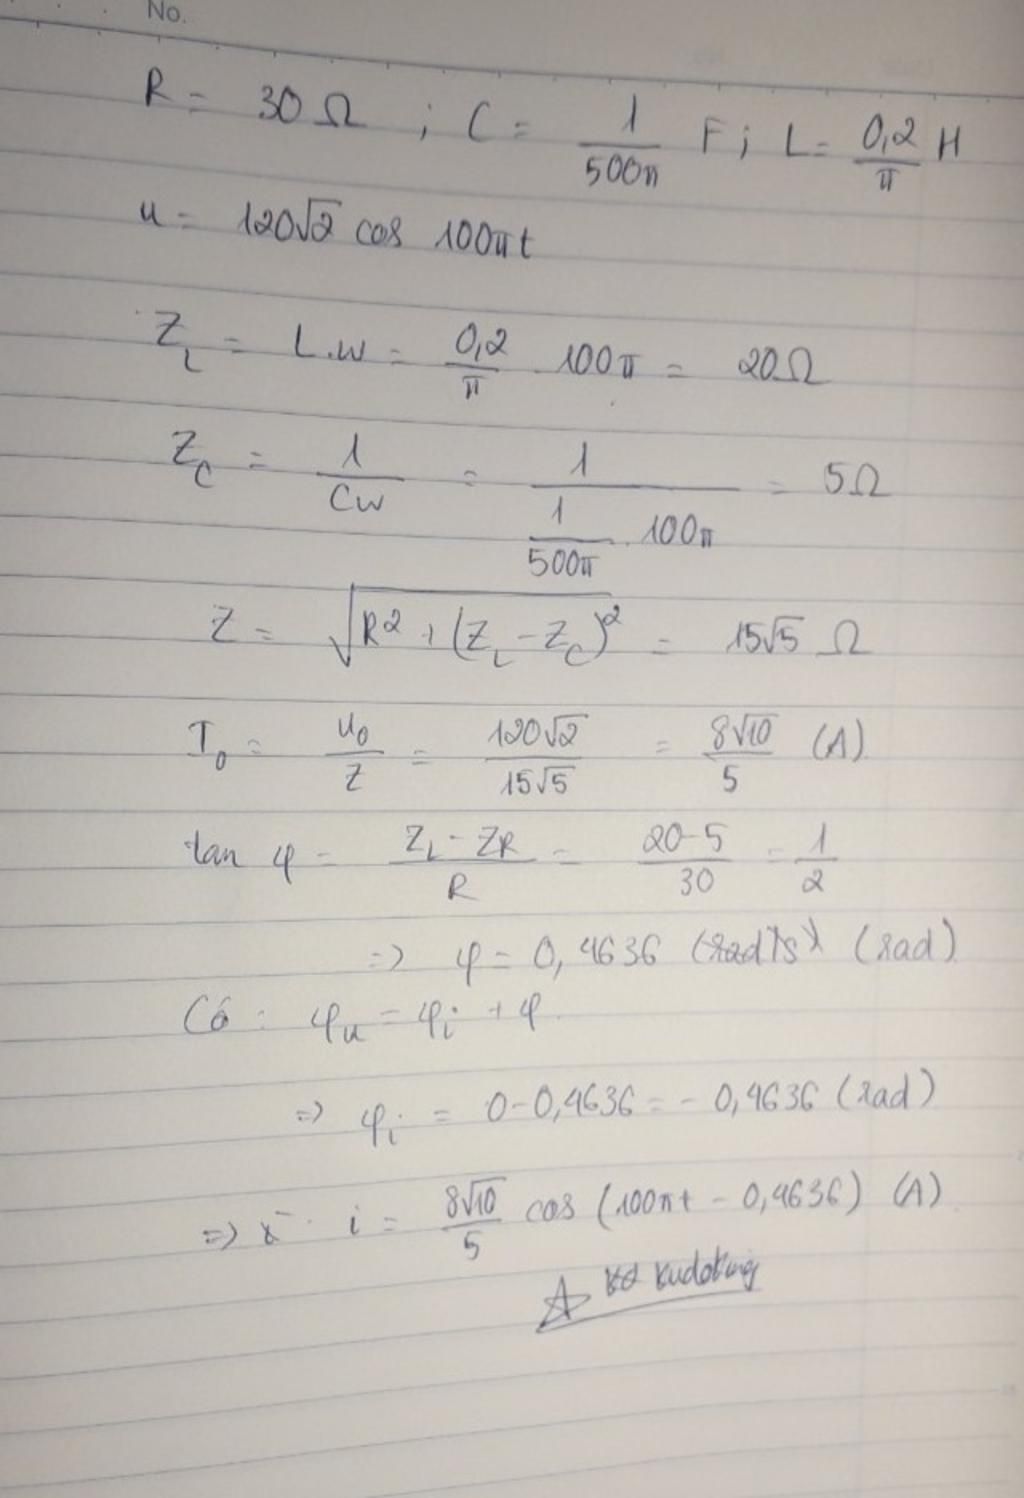 No.
R = 30 Ω ; C = 1/500π F ; L = 0,2/π H
u = 120√2 cos 100πt
Z_L = L.w = 0,2/π . 100π = 20Ω
Z_C = 1/Cw = 1/(1/500π . 100π) = 5Ω
Z = √(R² + (Z_L - Z_C)²) = 15√5 Ω
I₀ = u₀/Z = 120√2/15√5 = 8√10/5 (A)
tan φ = Z_L - Z_R/R = 20-5/30 = 1/2
=> φ = 0,4636 (rad/s) (rad)
Có : φ_u = φ_i + φ.
=> φ_i = 0 - 0,4636 = - 0,4636 (rad)
=> i = 8√10/5 cos (100πt - 0,4636) (A)